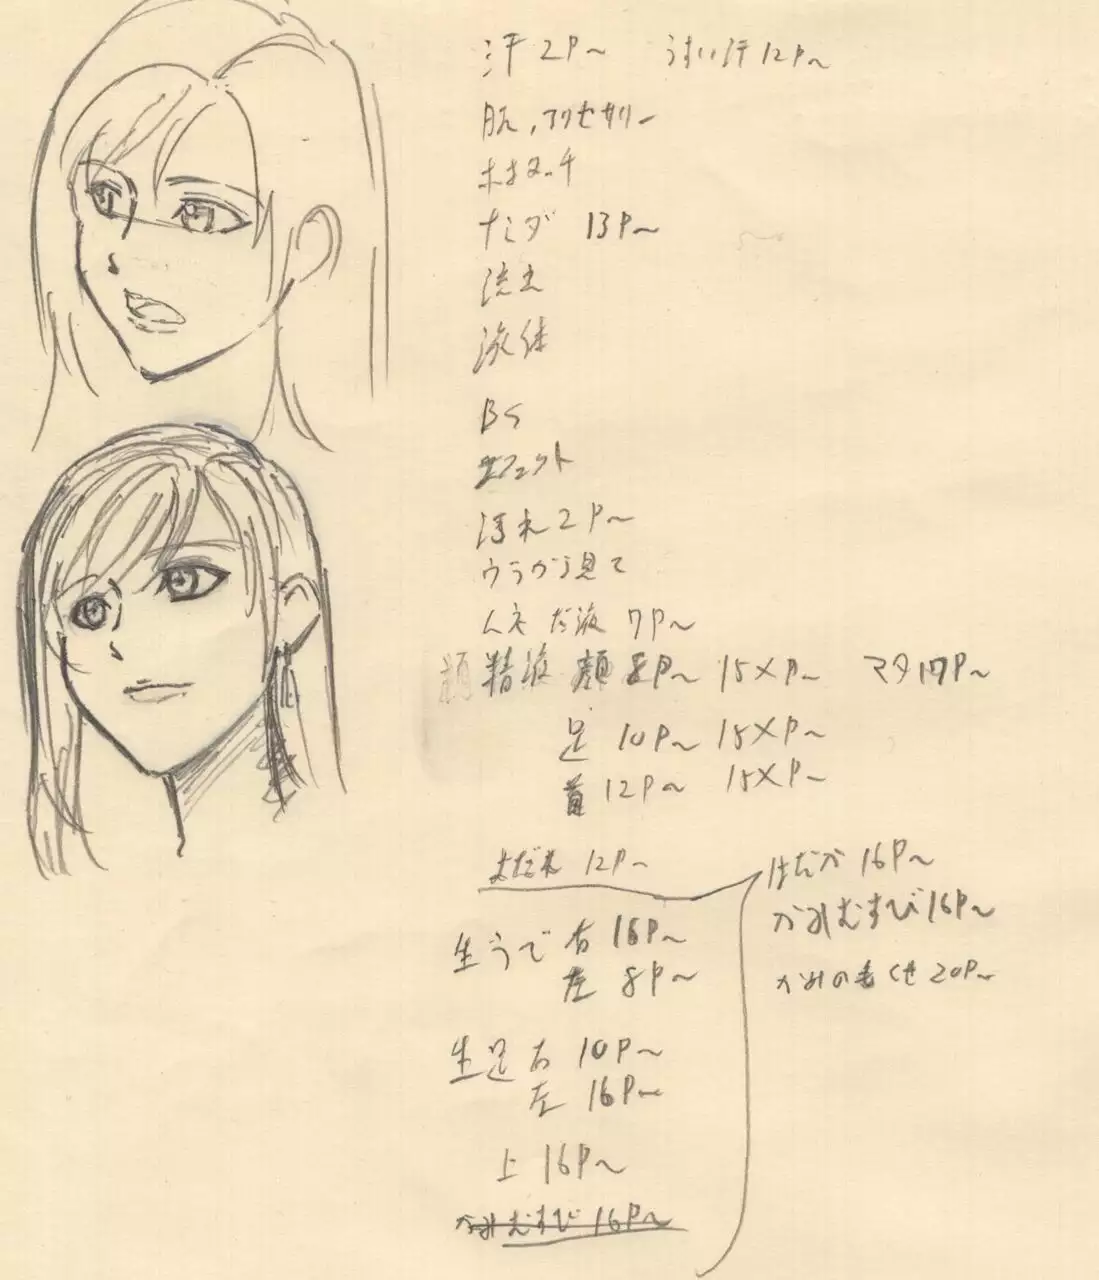 汗 2P〜 うすい汗 12P〜
肌、アクセサリー
ホホタッチ
ナミダ 13P〜
流血
液体
BS
エフェクト
汚れ 2P〜
ウラから見て
だ液 7P〜
顔 精液 顔 8P〜 15×P〜 マタ17P〜
足 10P〜 15×P〜
首 12P〜 15×P〜
よだれ 12P〜
はだか 16P〜
かみむすび 16P〜
かみの毛くせ 20P〜
生うで 右 16P〜
左 8P〜
生足 右 10P〜
左 16P〜
上 16P〜
かみむすび 16P〜